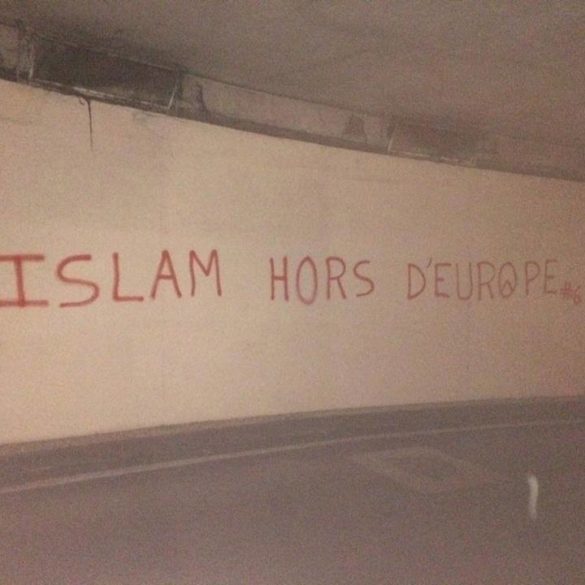 ISLAM HORS D'EUROPE